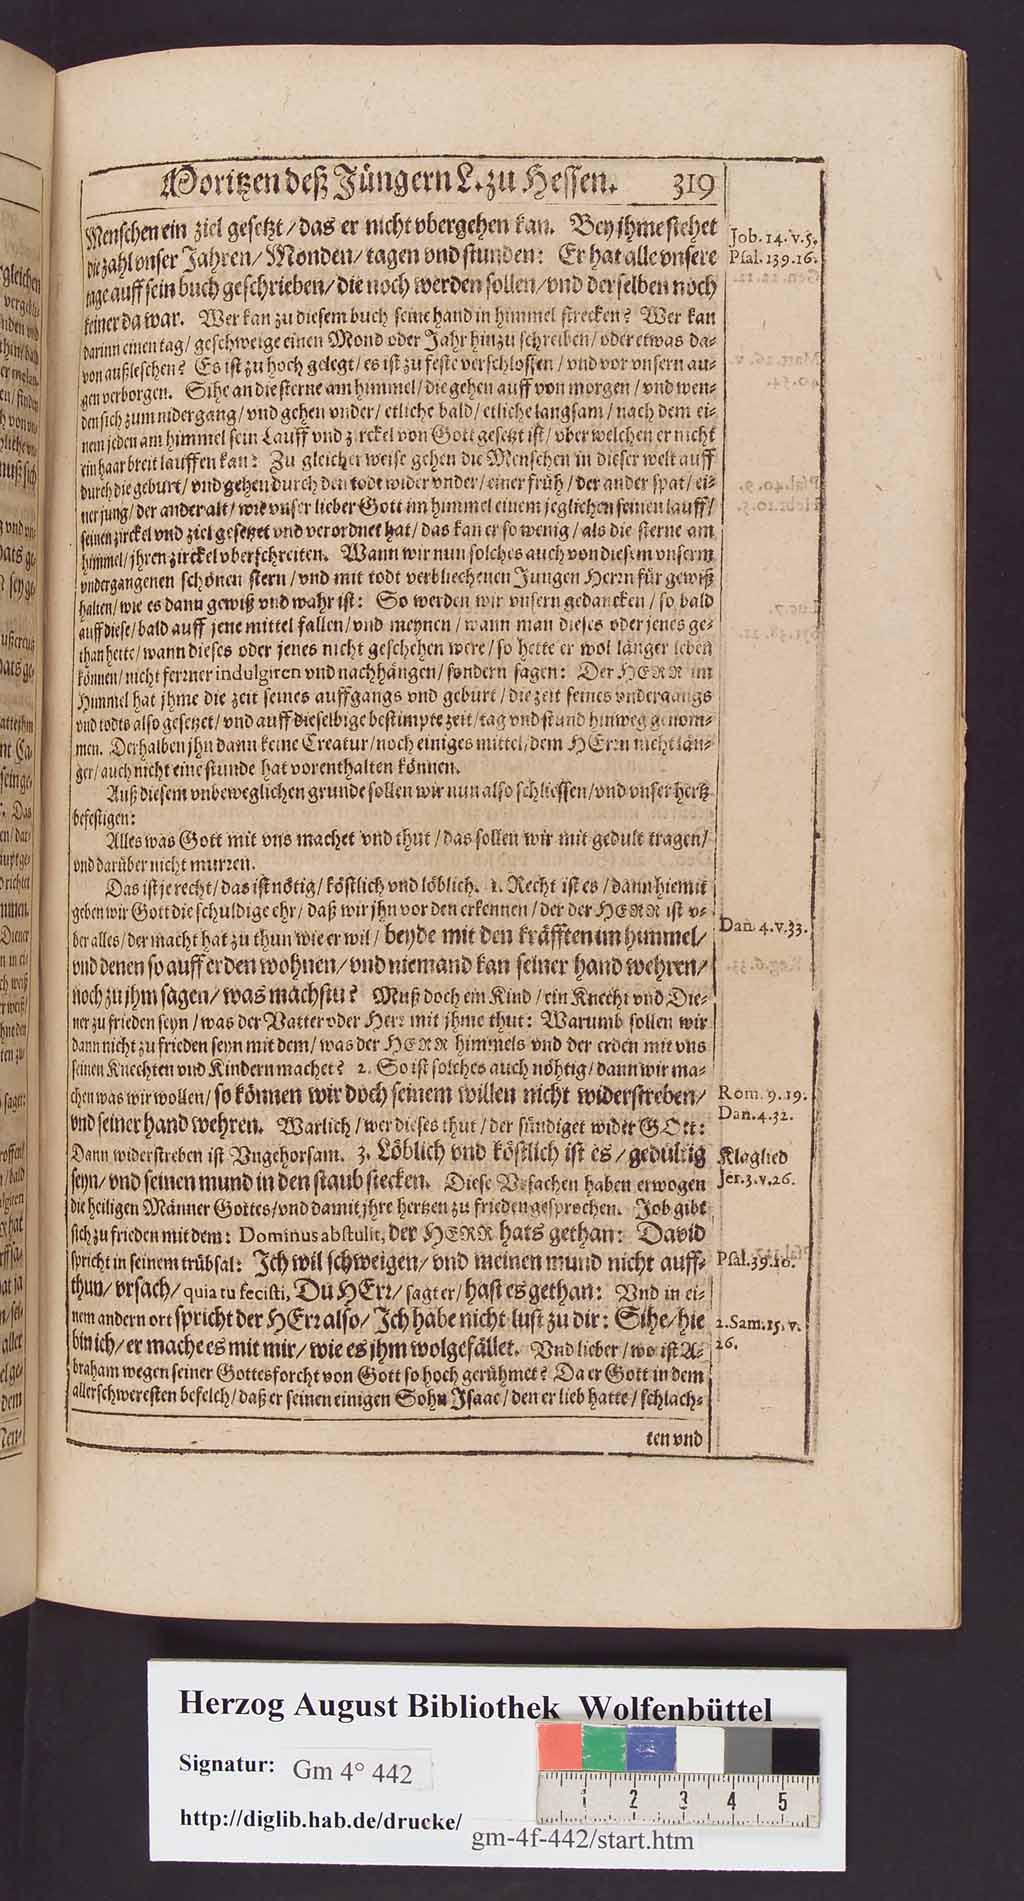 Moritzen deß Jüngern L. zu Hessen. 319
Menschen ein ziel gesetzt / das er nicht vbergehen kan. Bey ihme stehet
die zahl vnser Jahren / Monden / tagen vnd stunden: Er hat alle vnsere
tage auff sein buch geschrieben / die noch werden sollen / vnd derselben noch
keiner da war. Wer kan zu diesem buch seine hand in himmel strecken? Wer kan
darinn einen tag / geschweige einen Mond oder Jahr hinzu schreiben / oder etwas da-
von außleschen? Es ist zu hoch gelegt / es ist zu feste verschlossen / vnd vor vnsern au-
gen verborgen. Sihe an die sterne am himmel / die gehen auff von morgen / vnd wen-
den sich zum nidergang / vnd gehen vnder / etliche bald / etliche langsam / nach dem ei-
nem jeden am himmel sein Lauff vnd zirckel von Gott gesetzt ist / vber welchen er nicht
ein haar breit lauffen kan: Zu gleicher weise gehen die Menschen in dieser welt auff
durch die geburt / vnd gehen durch den todt wider vnder / einer früh / der ander spat / ei-
ner jung / der ander alt / wie vnser lieber Gott im himmel einem jeglichen seinen lauff /
seinen zirckel vnd ziel gesetzet vnd verordnet hat / das kan er so wenig / als die sterne am
himmel / jhren zirckel vberschreiten. Wann wir nun solches auch von diesem vnserm
vndergangenen schönen stern / vnd mit todt verbliechenen Jungen Herrn für gewiß
halten / wie es dann gewiß vnd wahr ist: So werden wir vnsern gedancken / so bald
auff diese / bald auff jene mittel fallen / vnd meynen / wann man dieses oder jenes ge-
than hette / wann dieses oder jenes nicht geschehen were / so hette er wol länger leben
können / nicht ferrner indulgiren vnd nachhängen / sondern sagen: Der HERR im
Himmel hat jhme die zeit seines auffgangs vnd geburt / die zeit seines vndergangs
vnd todts also gesetzet / vnd auff dieselbige bestimpte zeit / tag vnd stund hinweg genom-
men. Derhalben jhn dann keine Creatur / noch einiges mittel / dem HErrn nicht län-
ger / auch nicht eine stunde hat vorenthalten können.
Auß diesem vnbeweglichen grunde sollen wir nun also schliessen / vnd vnser hertz
befestigen:
Alles was Gott mit vns machet vnd thut / das sollen wir mit gedult tragen /
vnd darüber nicht murren.
Das ist je recht / das ist nötig / köstlich vnd löblich. 1. Recht ist es / dann hiemit
geben wir Gott die schuldige ehr / daß wir jhn vor den erkennen / der der HERR ist v-
ber alles / der macht hat zu thun wie er wil / beyde mit den kräfften im himmel /
vnd denen so auff erden wohnen / vnd niemand kan seiner hand wehren /
noch zu jhm sagen / was machstu? Muß doch ein Kind / ein Knecht vnd Die-
ner zu frieden seyn / was der Vatter oder Herr mit jhme thut: Warumb sollen wir
dann nicht zu frieden seyn mit dem / was der HERR himmels vnd der erden mit vns
seinen Knechten vnd Kindern machet? 2. So ist solches auch nöhtig / dann wir ma-
chen was wir wollen / so können wir doch seinem willen nicht widerstreben /
vnd seiner hand wehren. Warlich / wer dieses thut / der sündiget wider GOtt:
Dann widerstreben ist Vngehorsam. 3. Löblich vnd köstlich ist es / gedultig
seyn / vnd seinen mund in den staub stecken. Diese Vrsachen haben erwogen
die heiligen Männer Gottes / vnd damit jhre hertzen zu frieden gesprochen. Job gibt
sich zu frieden mit dem: Dominus abstulit, der HERR hats gethan: David
spricht in seinem trübsal: Ich wil schweigen / vnd meinen mund nicht auff-
thun / vrsach / quia tu fecisti, Du HErr / sagt er / hast es gethan: Vnd in ei-
nem andern ort spricht der HErr also / Ich habe nicht lust zu dir: Sihe / hie
bin ich / er mache es mit mir / wie es jhm wolgefället. Vnd lieber / wo ist A-
braham wegen seiner Gottesforcht von Gott so hoch gerühmet? Da er Gott in dem
allerschweresten befelch / daß er seinen einigen Sohn Isaac / den er lieb hatte / schlach-
ten vnd
Job. 14. v. 5.
Psal. 139. 16.
Dan. 4. v. 33.
Rom. 9. 19.
Dan. 4. 32.
Klaglied
Jer. 3. v. 26.
Psal. 39. 10.
2. Sam. 15. v.
26.
Herzog August Bibliothek Wolfenbüttel
Signatur: Gm 4° 442
http://diglib.hab.de/drucke/ gm-4f-442/start.htm
1 2 3 4 5